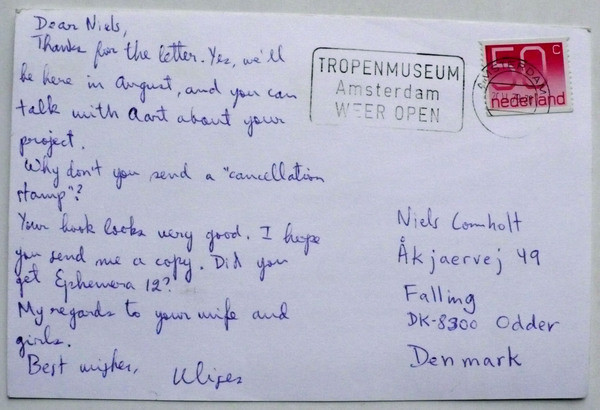 Dear Niels,
Thanks for the letter. Yes, we'll
be here in August, and you can
talk with Aart about your
project.
Why don't you send a "cancellation
stamp"?
Your book looks very good. I hope
you send me a copy. Did you
get Ephemera 12?
My regards to your wife and
girls.
Best wishes,
Ulises
TROPENMUSEUM
Amsterdam
WEER OPEN
AMSTERDAM
50 C
nederland
Niels Lomholt
Åkjaervej 49
Falling
DK-8300 Odder
Denmark